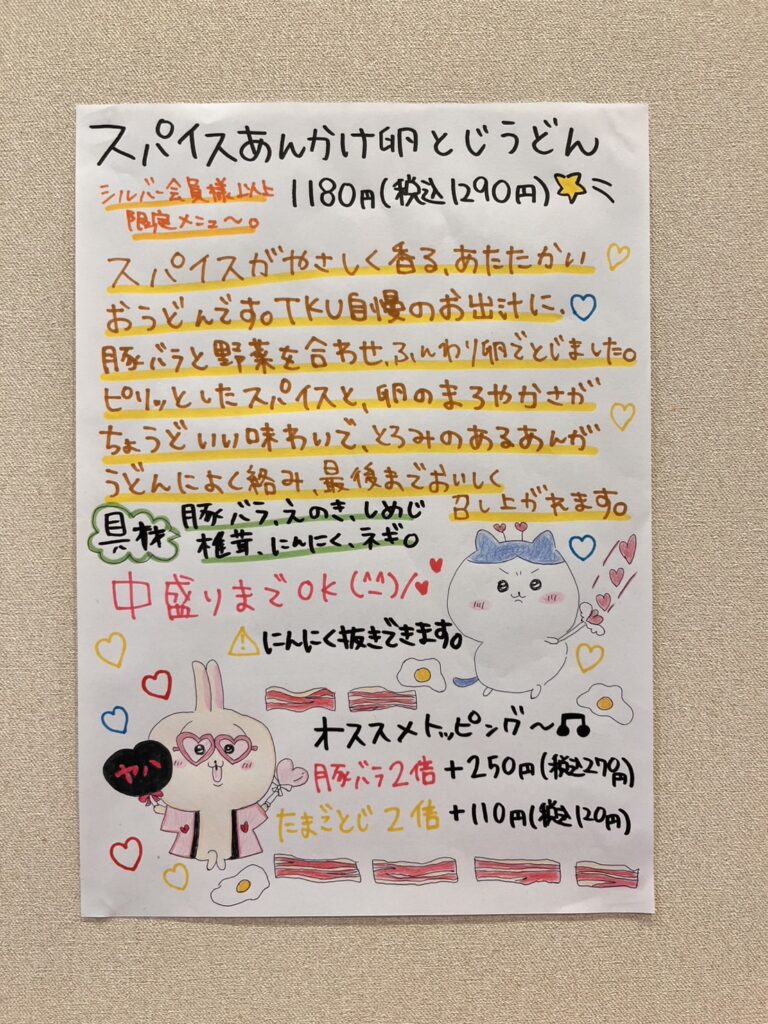 スパイスあんかけ卵とじうどん
シルバー会員様以上
限定メニュ〜。
1180円(税込1290円)
スパイスがやさしく香る、あたたかい
おうどんです。TKU自慢のお出汁に、
豚バラと野菜を合わせ、ふんわり卵でとじました。
ピリッとしたスパイスと、卵のまろやかさが
ちょうどいい味わいで、とろみのあるあんが
うどんによく絡み、最後までおいしく
召し上がれます。
具材
豚バラ、えのき、しめじ
椎茸、にんにく、ネギ。
中盛りまでOK(^^)/
にんにく抜きできます。
オススメトッピング〜♫
ヤハ
豚バラ2倍 +250円(税込270円)
たまごとじ2倍 +110円(税込120円)